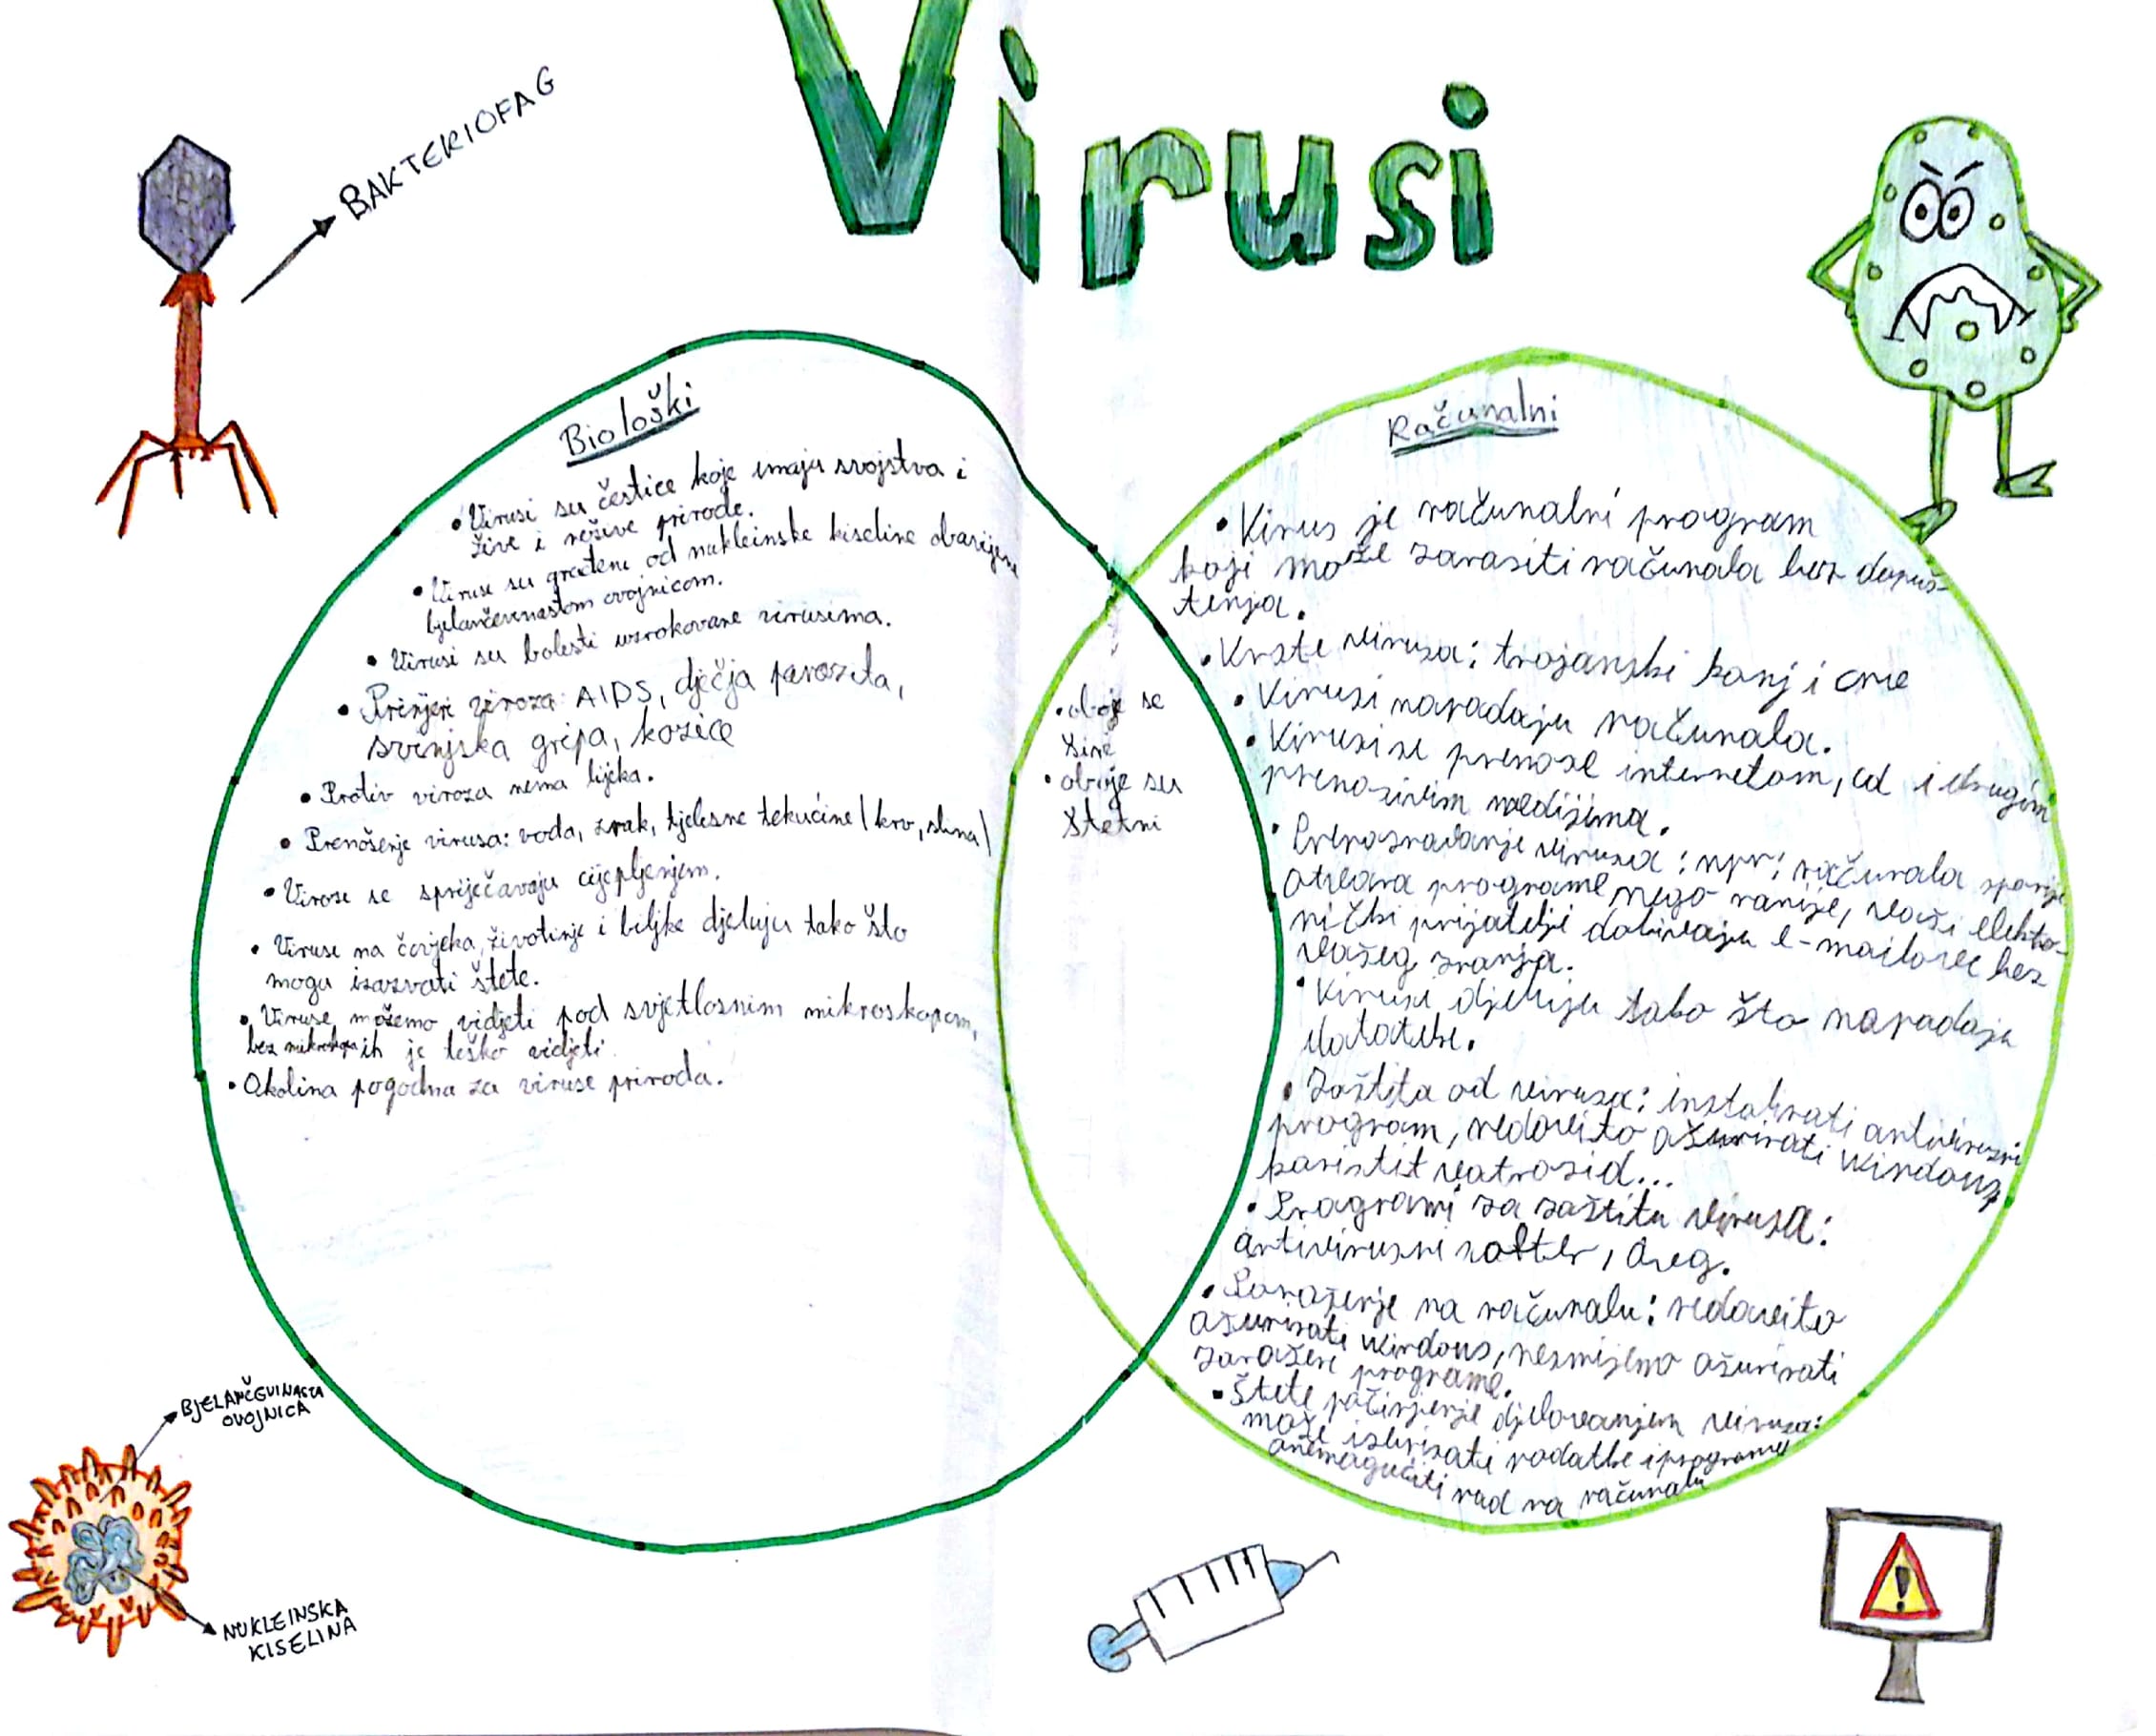 Virusi
BAKTERIOFAG
Biološki
• Virusi su čestice koje imaju svojstva i
žive i nežive prirode.
• Virusi su građeni od nukleinske kiseline obavijene
bjelančevinastom ovojnicom.
• Virusi su bolesti uzrokovane virusima.
• Primjeri viroza: AIDS, dječja paraliza,
svinjska gripa, kozice
• Protiv viroza nema lijeka.
• Prenošenje virusa: voda, zrak, tjelesne tekućine (krv, slina)
• Viroze se spriječavaju cijepljenjem.
• Virusi na čovjeka, životinje i biljke djeluju tako što
mogu izazvati štete.
• Viruse možemo vidjeti pod svjetlosnim mikroskopom,
bez mikroskopa ih je teško vidjeti.
• Okolina pogodna za viruse priroda.
• oboje se
šire
• oboje su
štetni
Računalni
• Virus je računalni program
koji može zaraziti računala bez dopuš-
tenja.
• Vrste virusa: trojanski konj i crvi
• Virusi napadaju računala.
• Virusi se prenose internetom, cd i drugim
prenosivim medijima.
• Prepoznavanje virusa: npr: računala sporije
otvara programe nego ranije, vaši elektro-
nički prijatelji dobivaju e-mailove bez
vašeg znanja.
• Virusi djeluju tako što napadaju
datoteke.
• Zaštita od virusa: instalirati antivirusni
program, redovito ažurirati windows,
koristit vatrozid...
• Programi za zaštitu virusa:
antivirusni softer, Avg.
• Ponašenje na računalu: redovito
ažurirati windows, nesmijemo ažurirati
zaražene programe.
• Štete počinjenje djelovanjem virusa:
može izbrisati podatke i programe
onemogućiti rad na računalu
BJELANČEVINASTA
OVOJNICA
NUKLEINSKA
KISELINA